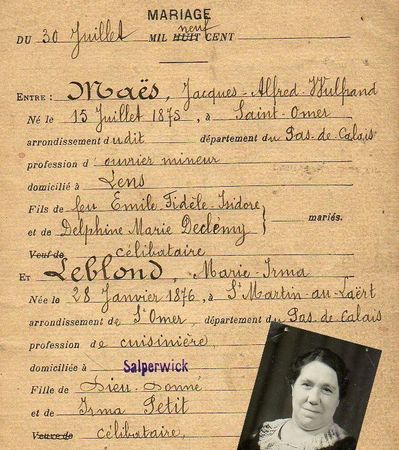 MARIAGE
DU 30 Juillet MIL HUIT neuf CENT
ENTRE : Maës, Jacques-Alfred-Wulfrand
Né le 15 Juillet 1875, à Saint-Omer
arrondissement dudit département du Pas-de-Calais
profession d'ouvrier mineur
domicilié à Lens
Fils de feu Emile Fidèle-Isidore
et de Delphine Marie Declémy } mariés.
Veuf de célibataire
ET Leblond, Marie-Irma
Née le 28 Janvier 1876, à St Martin-au-Laërt
arrondissement de St Omer, département du Pas de Calais
profession de cuisinière,
domiciliée à Salperwick
Fille de Dieu-Donné
et de Irma Petit
Veuve de célibataire,